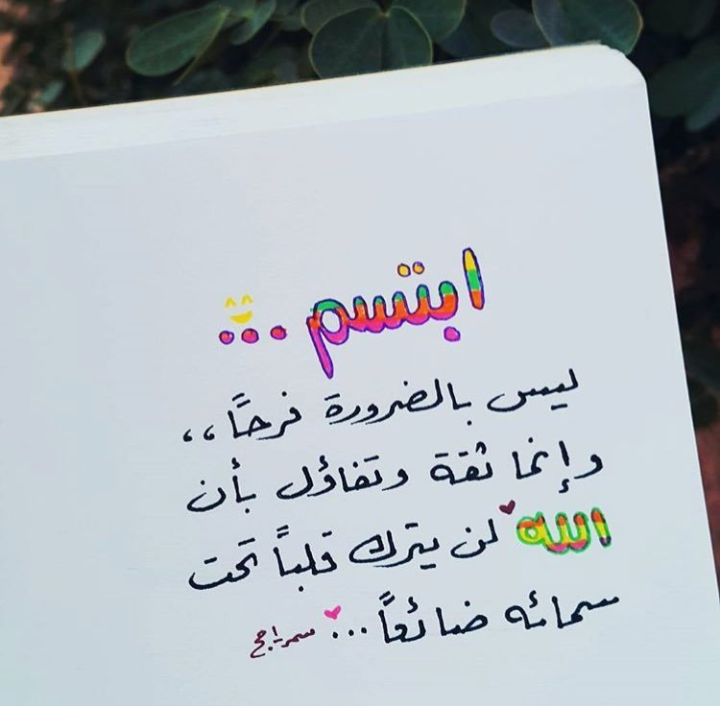 ابتسم...
ليس بالضرورة فرحًا،،
وإنما ثقة وتفاؤل بأن
الله لن يترك قلباً تحت
سمائه ضائعاً...